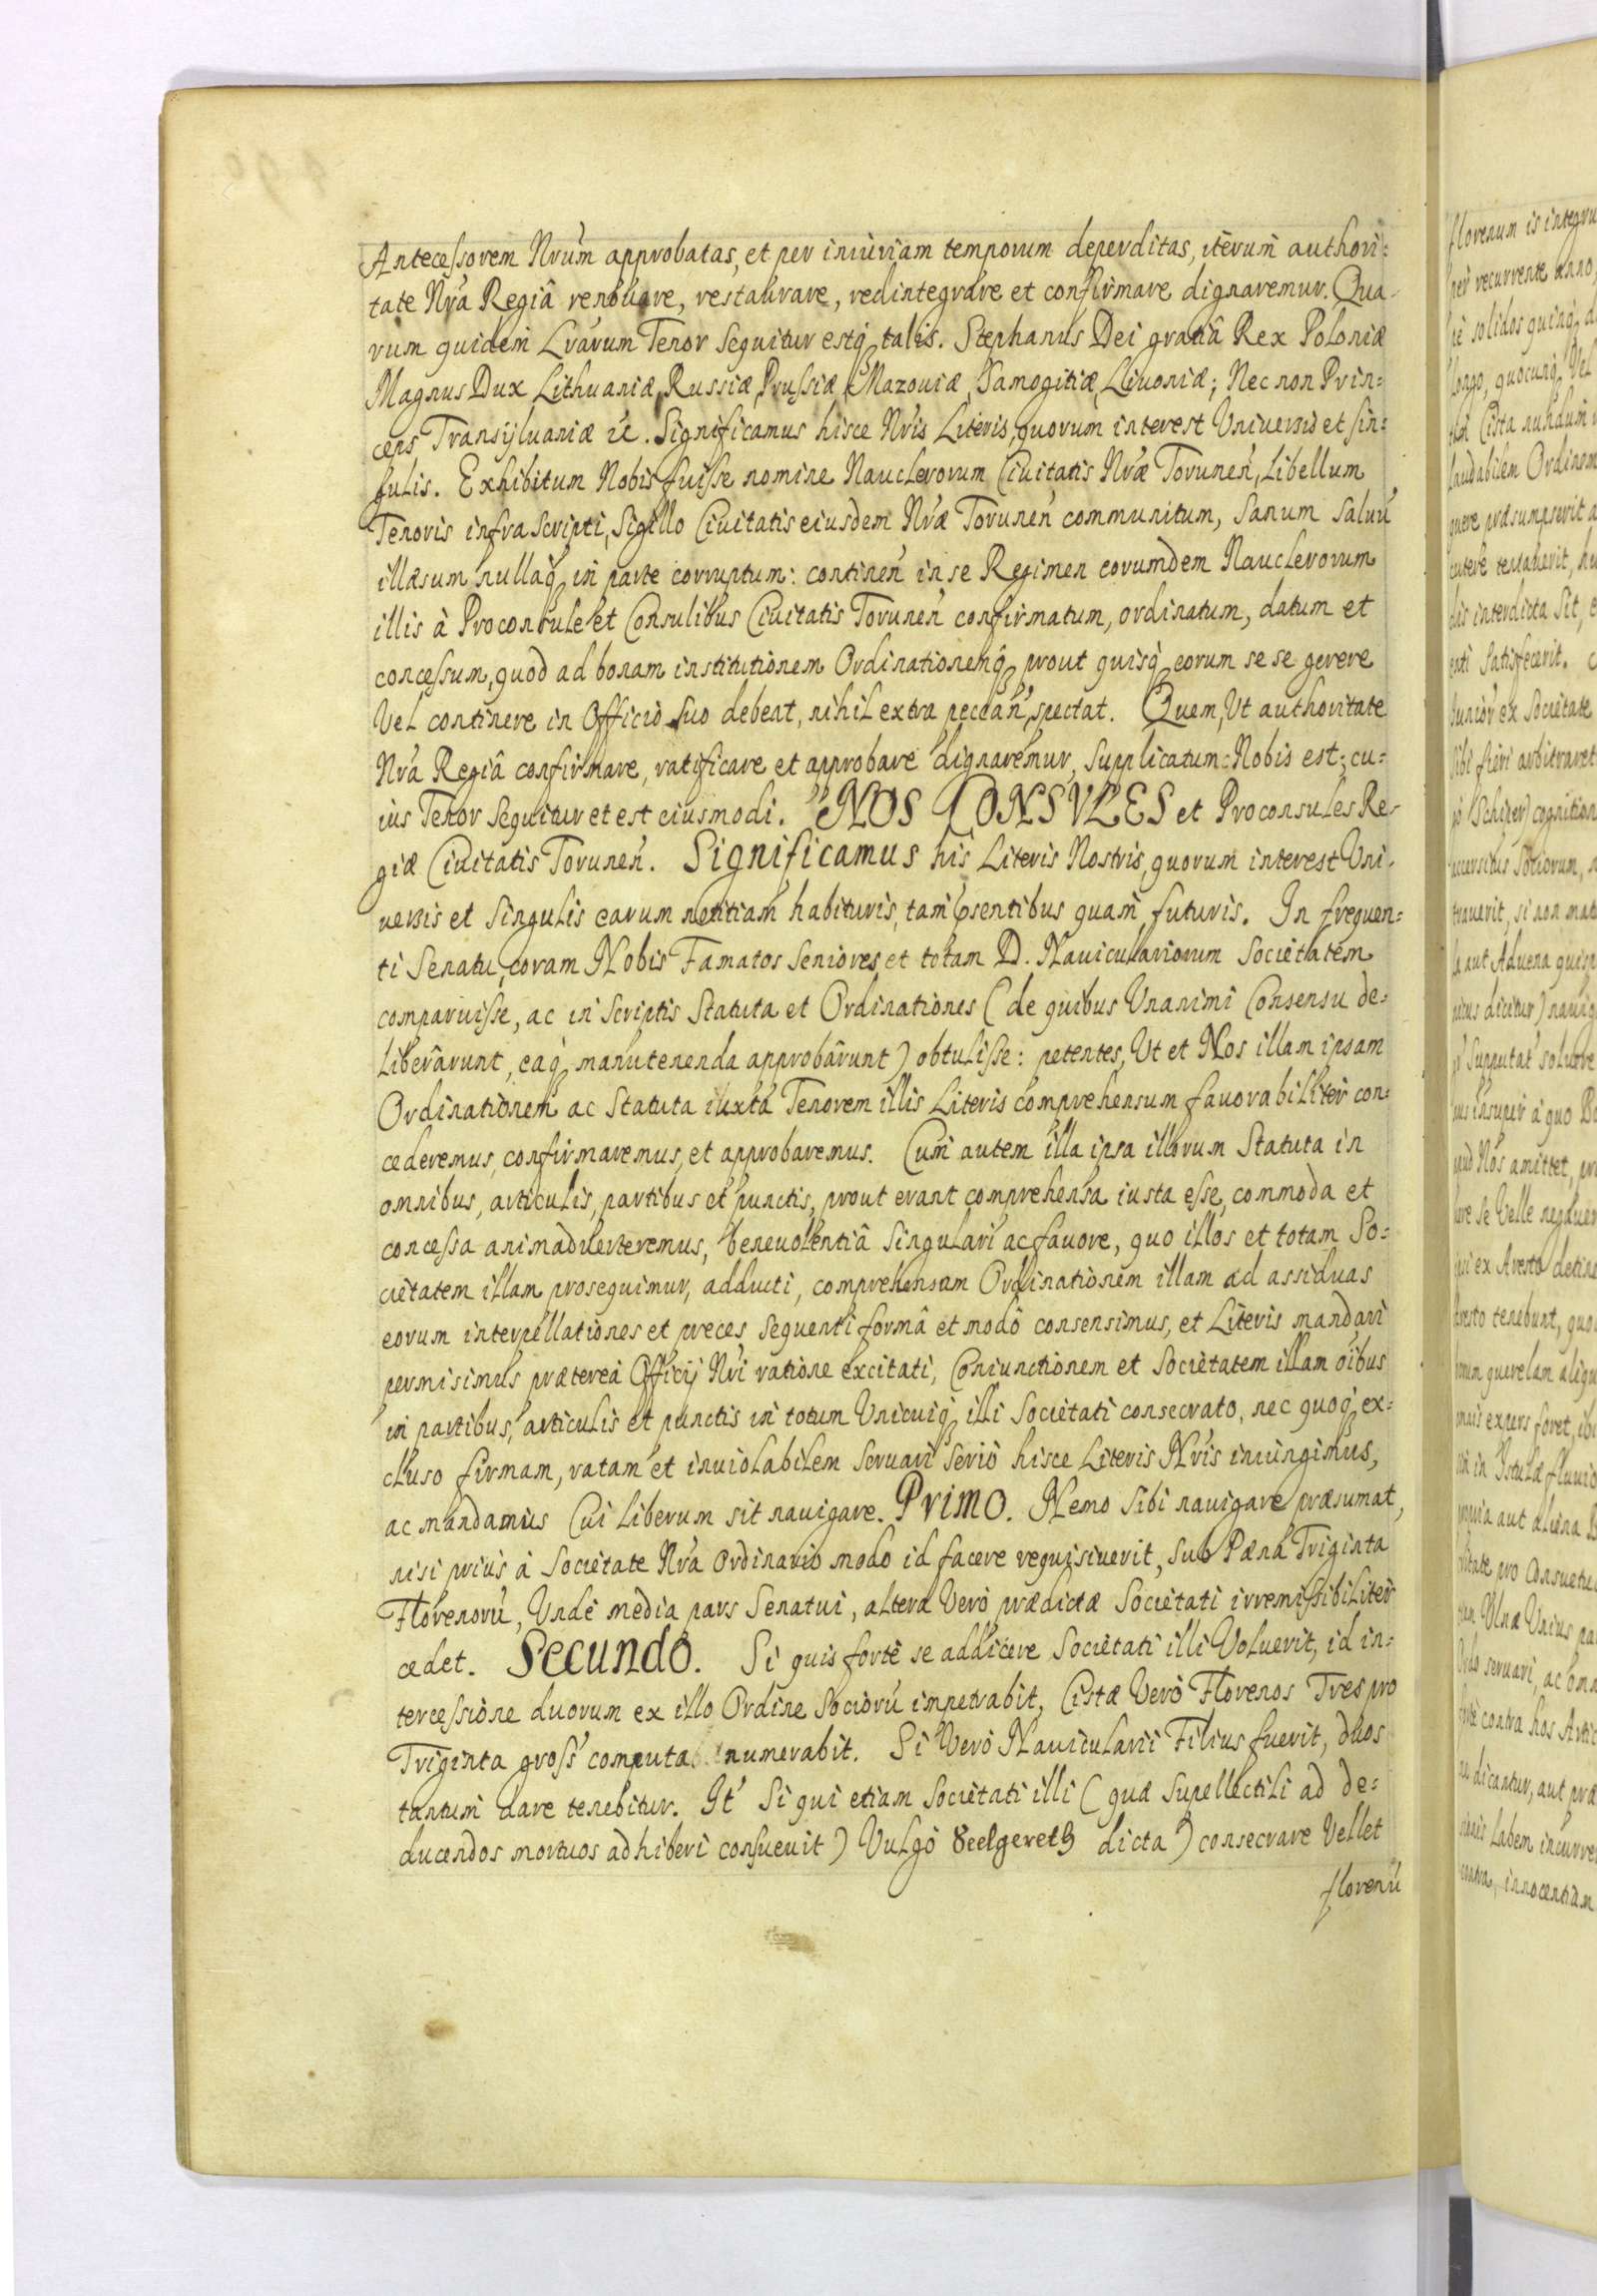 Antecessorem Nrum approbatas, et per iniuriam temporum deperditas, iterum authori=
tate Nra Regiâ renouare, restaurare, redintegrare et confirmare dignaremur. Qua-
rum quidem Lrarum Tenor sequitur estq talis. Stephanus Dei gratiâ Rex Poloniæ
Magnus Dux Lithuaniæ, Russiæ, Prussiæ, Mazouiæ, Samogitiæ, Liuoniæ; Nec non Prin=
ceps Transyluaniæ &c. Significamus hisce Nris Literis, quorum interest Uniuersis et sin=
gulis. Exhibitum Nobis fuisse nomine Nauclerorum Ciuitatis Nræ Torunen, Libellum
Tenoris infra scripti, Sigillo Ciuitatis eiusdem Nræ Torunen communitum, Sanum Saluu
illæsum nullaq in parte corruptum: continen in se Regimen eorumdem Nauclerorum
illis à Proconsule et Consulibus Ciuitatis Torunen confirmatum, ordinatum, datum et
concessum, quod ad bonam institutionem Ordinationemq prout quisq eorum se se gerere
Vel continere in Officio suo debeat, nihil extra peccan, spectat. Quem, Ut authoritate
Nra Regiâ confirmare, ratificare et approbare dignaremur, Supplicatum Nobis est; cu=
ius Tenor sequitur et est eiusmodi. NOS CONSVLES et Proconsules Re-
giæ Ciuitatis Torunen. Significamus his Literis Nostris, quorum interest Uni-
uersis et Singulis earum notitiam habituris, tam psentibus quam futuris. In frequen=
ti Senatu, coram Nobis Famatos Seniores, et totam D. Nauiculariorum Societatem
comparuisse, ac in Scriptis Statuta et Ordinationes (de quibus Unanimi Consensu de=
liberârunt, eaq manutenenda approbârunt) obtulisse: petentes, Ut et Nos illam ipsam
Ordinationem ac Statuta iuxta Tenorem illis Literis comprehensum fauorabiliter con=
cederemus, confirmaremus, et approbaremus. Cum autem illa ipsa illorum Statuta in
omnibus, articulis, partibus et punctis, prout erant comprehensa iusta esse, commoda et
concessa animaduerteremus, beneuolentiâ Singulari ac fauore, quo illos et totam So=
cietatem illam prosequimur, adducti, comprehensam Ordinationem illam ad assiduas
eorum interpellationes et preces, Sequenti formâ et modo consensimus, et Literis mandari
permisimus præterea Officij Nri ratione excitati, Coniunctionem et Societatem illam oibus
in partibus, articulis et punctis in totum Unicuiq illi Societati consecrato, nec quoq ex=
cluso firmam, ratam et inuiolabilem Seruari Seriò hisce Literis Nris iniungimus,
ac mandamus Cui Liberum sit nauigare. Primo. Nemo Sibi nauigare præsumat,
nisi prius à Societate Nra Ordinario modo id facere requisiuerit, Sub Pæna Triginta
Florenoru, Unde media pars Senatui, altera Verò prædictæ Societati irremissibiliter
cedet. Secundo. Si quis fortè se addicere Societati illi Voluerit, id in=
tercessione duorum ex illo Ordine Socioru impetrabit, Cistæ Verò Florenos Tres pro
Triginta gross computa numerabit. Si Verò Nauicularii Filius fuerit, duos
tantum dare tenebitur. It Si qui etiam Societati illi (quæ Supellectili ad de=
ducendos mortuos adhiberi consueuit) Vulgò Seelgereth dicta) consecrare Vellet
florenu